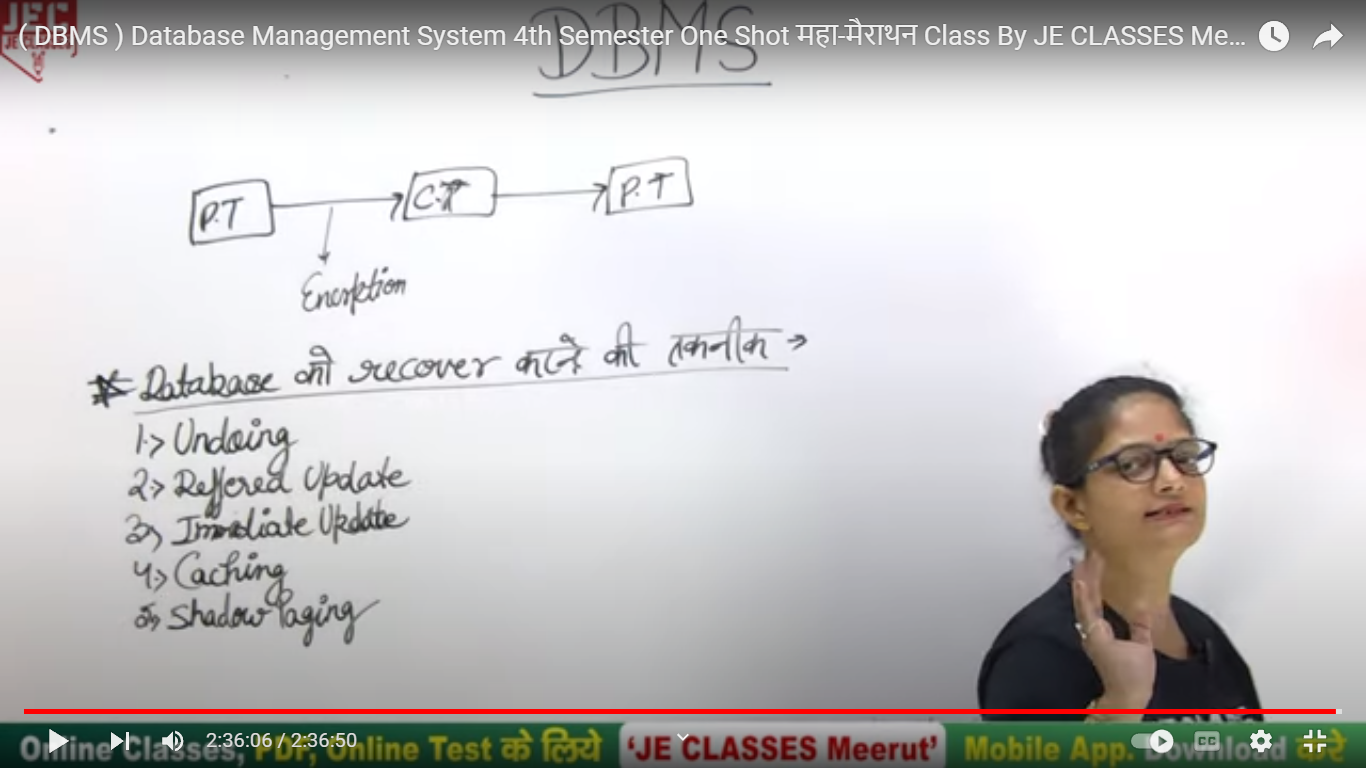 ( DBMS ) Database Management System 4th Semester One Shot महा-मैराथन Class By JE CLASSES Me...
JEC
DBMS
P.T
C.T
P.T
Encrption
* Database को recover करने की तकनीक →
1.> Undoing
2.> Deffered Update
3> Immediate Update
4.> Caching
5> Shadow Paging
2:36:06 / 2:36:50
CC
Online Classes, PDF, Online Test के लिये 'JE CLASSES Meerut' Mobile App. Download करे